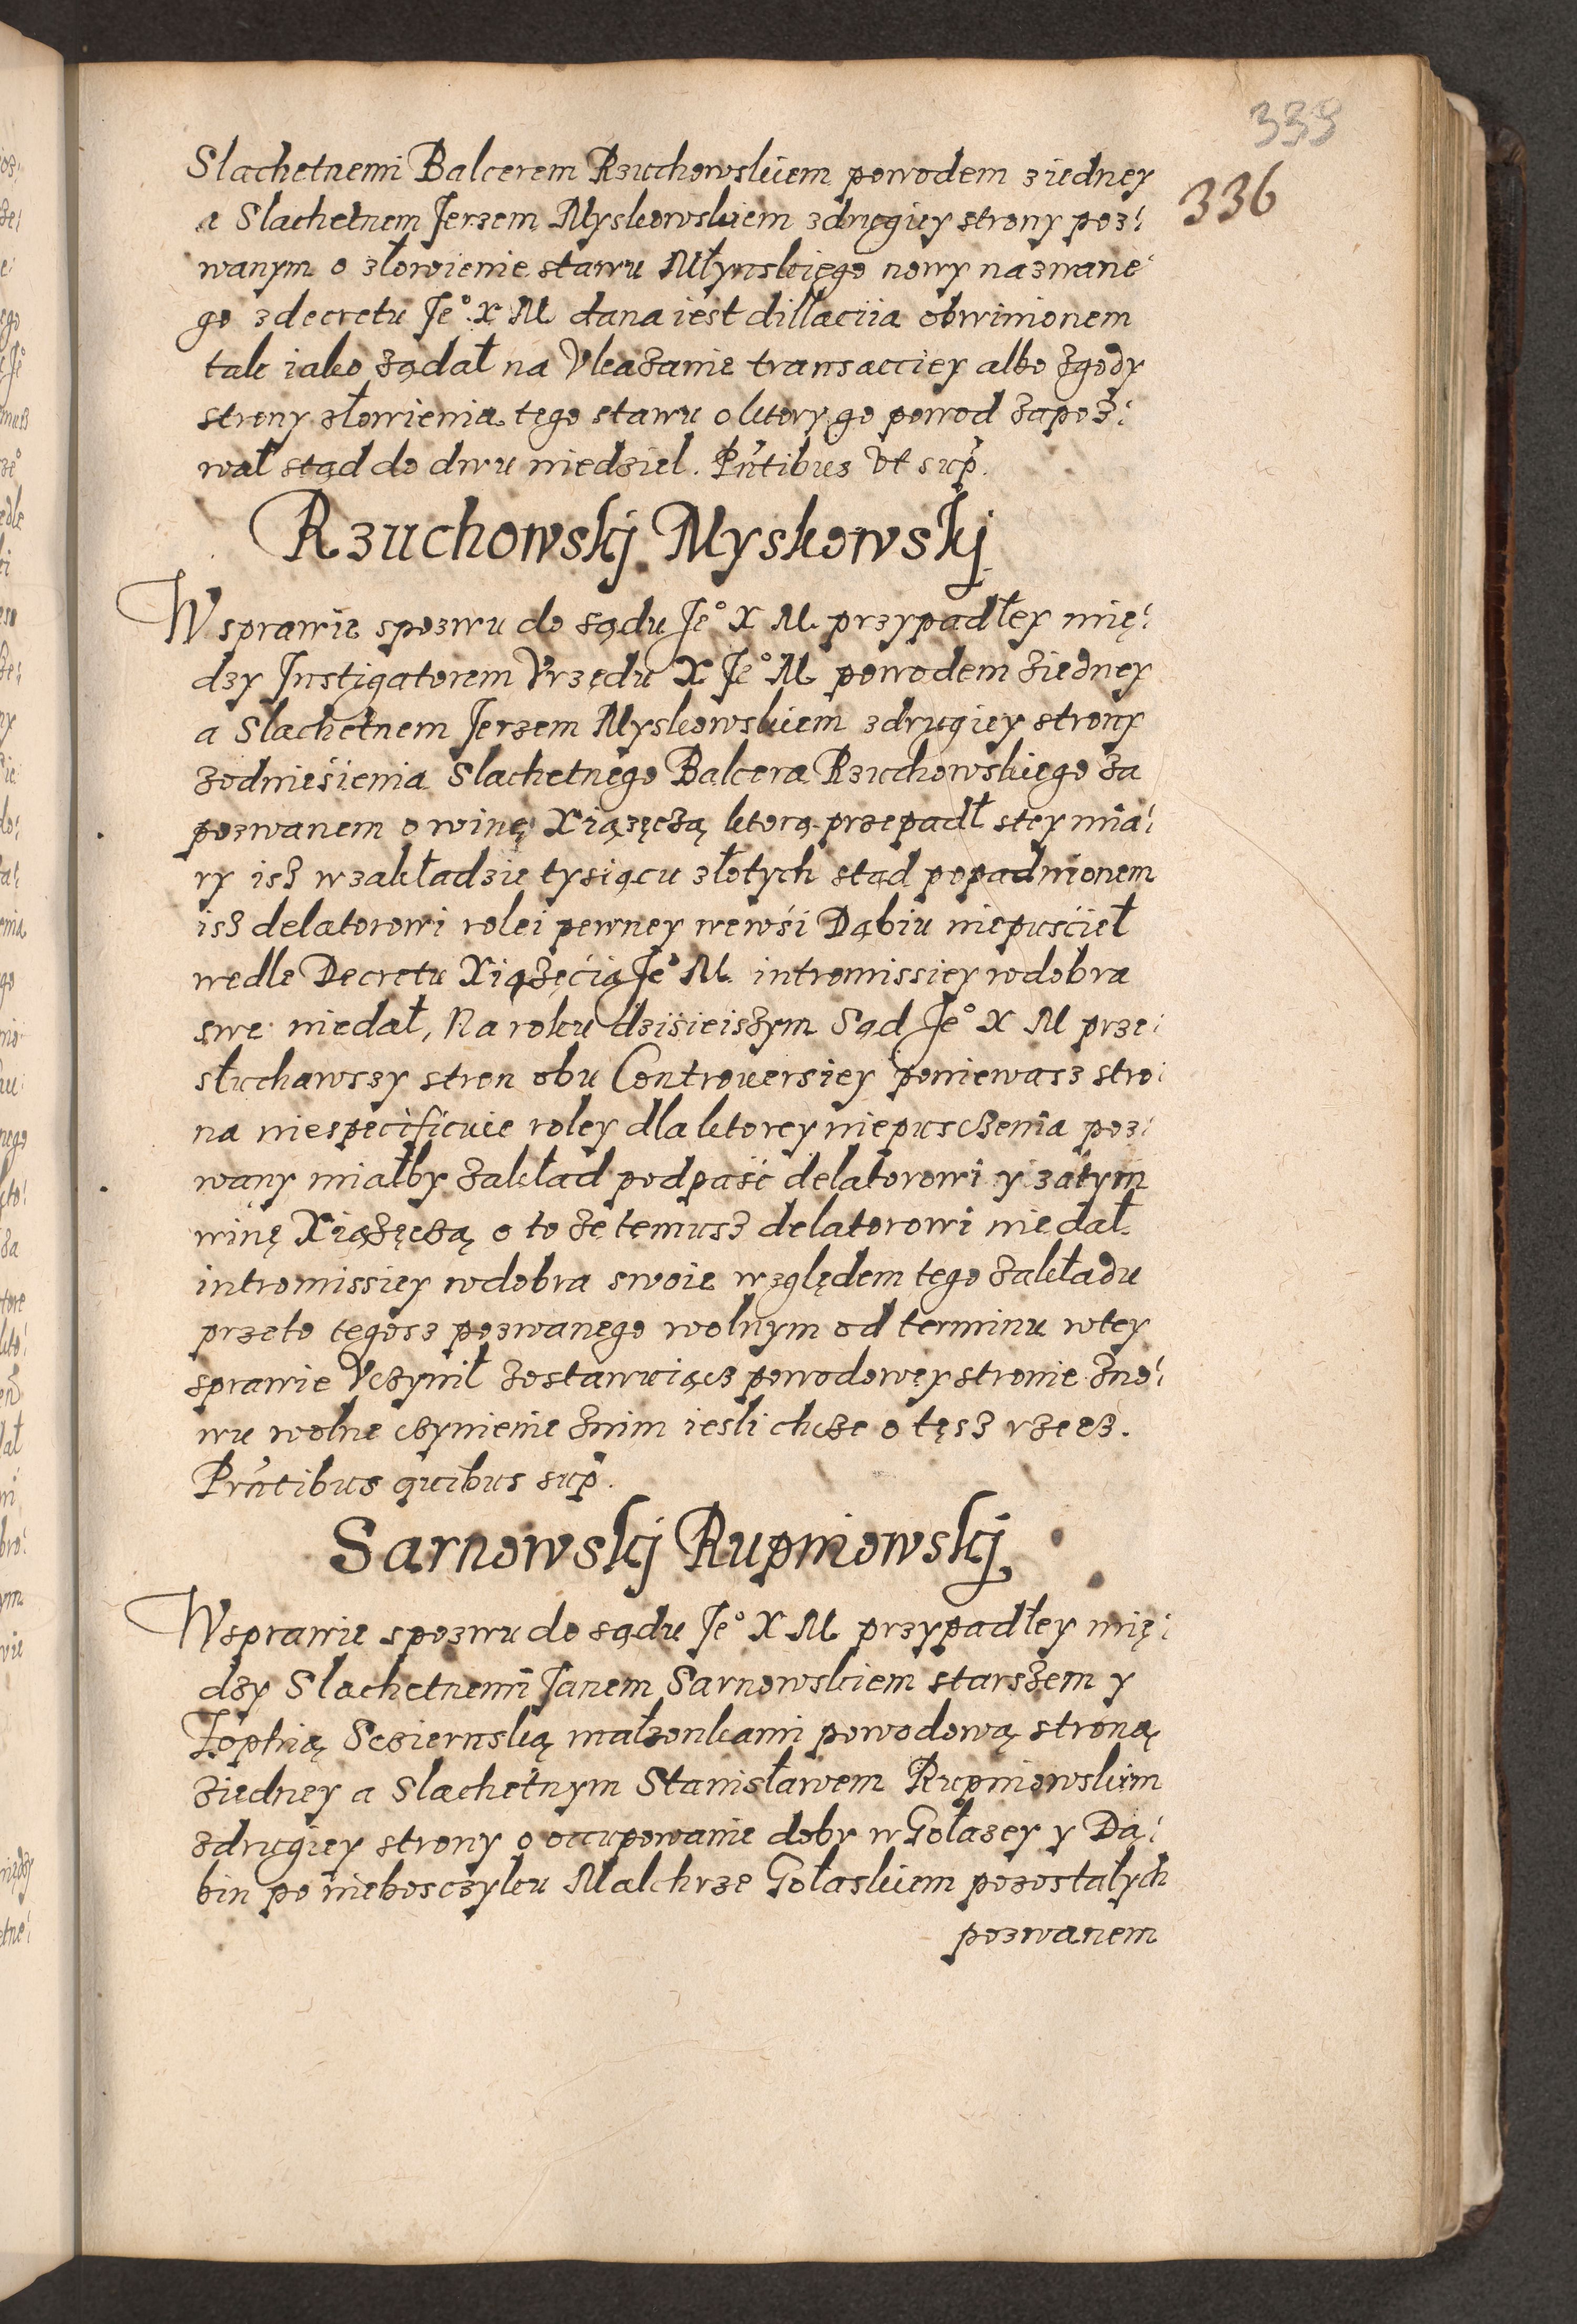 339
336
Slachetnemi Balcerem Rzuchowskiem powodem z iedney
a Slachetnem Jerzem Myskowskiem zdrugiey strony poz:
wanym o złowienie stawu Młynskięgo nowy nazwane
go z decretu Je° X M dana iest dillaciia obwinionem
tak iako żądał na Vkazanie transacciey albo zgody
strony złowienia tego stawu o ktory go powod zapoz:
wał stąd do dwu niedziel. Pñtibus Vt sup̃.
Rzuchowskj Myskowskj
W sprawie spozwu do sądu Je° X M przypadłey mię:
dzy Instigatorem Vrzędu X Je° M powodem ziedney
a Slachetnem Jerzem Myskowskiem zdrugiey strony
zodnieśienia Slachetnego Balcera Rzuchowskiego za
pozwanem o winę Xiązęczą ktorą przepadł stey mia:
ry isz wzakładzie tysiącu złotych stąd popadnionem
isz delatorowi rolei pewney wewśi Dąbiu niepuścieł
wedle Decretu Xiążęcią Je° M intromissiey wdobra
swe niedał, Na roku dzisieiszym Sąd Je° X M prze:
słuchawszy stron obu Controuersiey poniewasz stro:
na niespecificuie roley dla ktorey niepusczenia poz:
wany miałby zakład podpaść delatorowi y zatym
winę Xiążęczą o to że temusz delatorowi nie dał
intromissiey wdobra swoie względem tego zakładu
przeto tegosz pozwanego wolnym od terminu wtey
sprawie Vczynił zostawuiącz powodowey stronie zno:
wu wolne czynienie znim iesli chcze o tęsz rzecz.
Prñtibus quibus sup̃.
Sarnowskj Rupniowskj
Wsprawie spozwu do sądu Je° X M przypadłey mię:
dzy Slachetnemi Janem Sarnowskiem starszem y
Zophią Scziernską małzonkami powodową stroną
ziedney a Slachetnym Stanisławem Rupniowskim
zdrugiey strony o occupowanie dobr w Gołaszey y Dą:
bin po nieboszczyku Malchrze Gołaskiem pozostałych
pozwanem